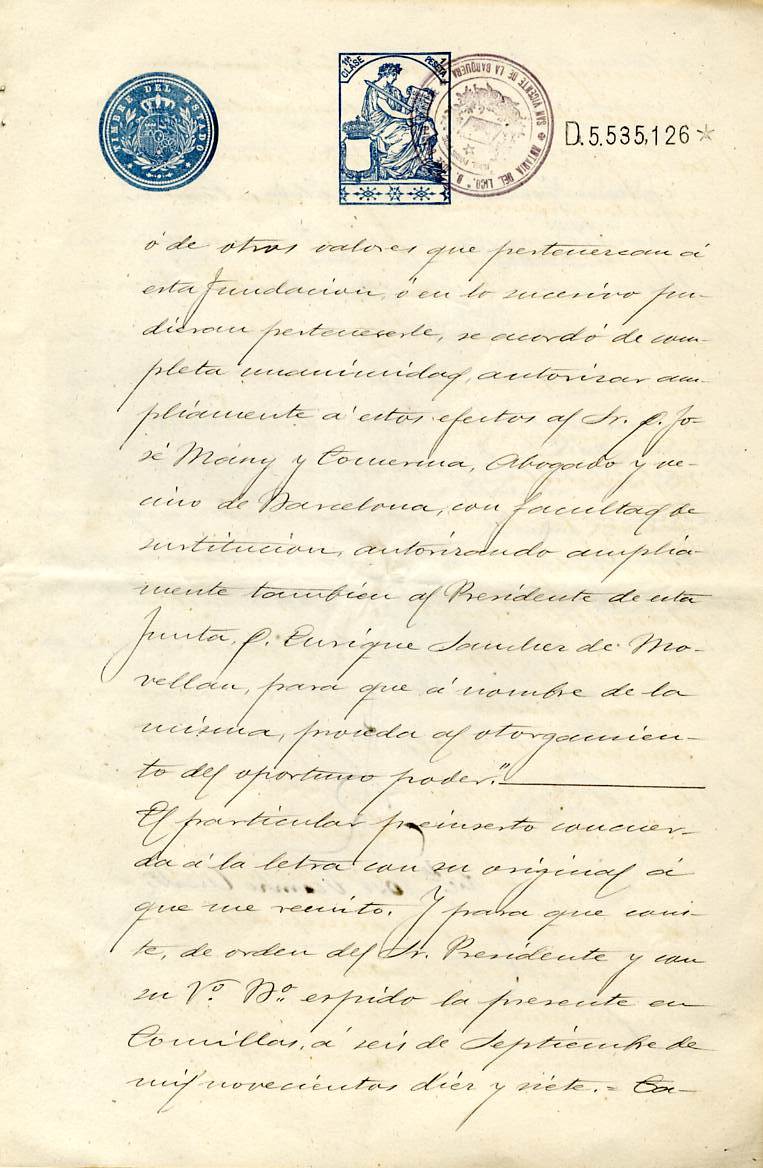 TIMBRE DEL ESTADO
11ª CLASE
1 PESETA
NOTARIA DEL LICO. D.
SAN VICENTE DE LA BARQUERA
D.5.535,126
ó de otros valores que pertenezcan á
esta Fundacion, ó en lo sucesivo pu-
dieran pertenecerle, se acordó de com-
pleta unanimidad, autorizar am-
pliamente á estos efectos al Sr. D. Jo-
sé Mány y Comerma, Abogado y ve-
cino de Barcelona, con facultad de
sustitucion, autorizando amplia-
mente tambien al Presidente de esta
Junta, D. Enrique Sanchez de Mo-
vellan, para que á nombre de la
misma, proceda al otorgamien-
to del oportuno poder."
El particular preinserto concuer-
da á la letra con su original á
que me remito. Y para que cons-
te, de orden del Sr. Presidente y con
su Vº. Bº. espido la presente en
Comillas, á seis de Septiembre de
mil novecientos diez y siete. = Ca-